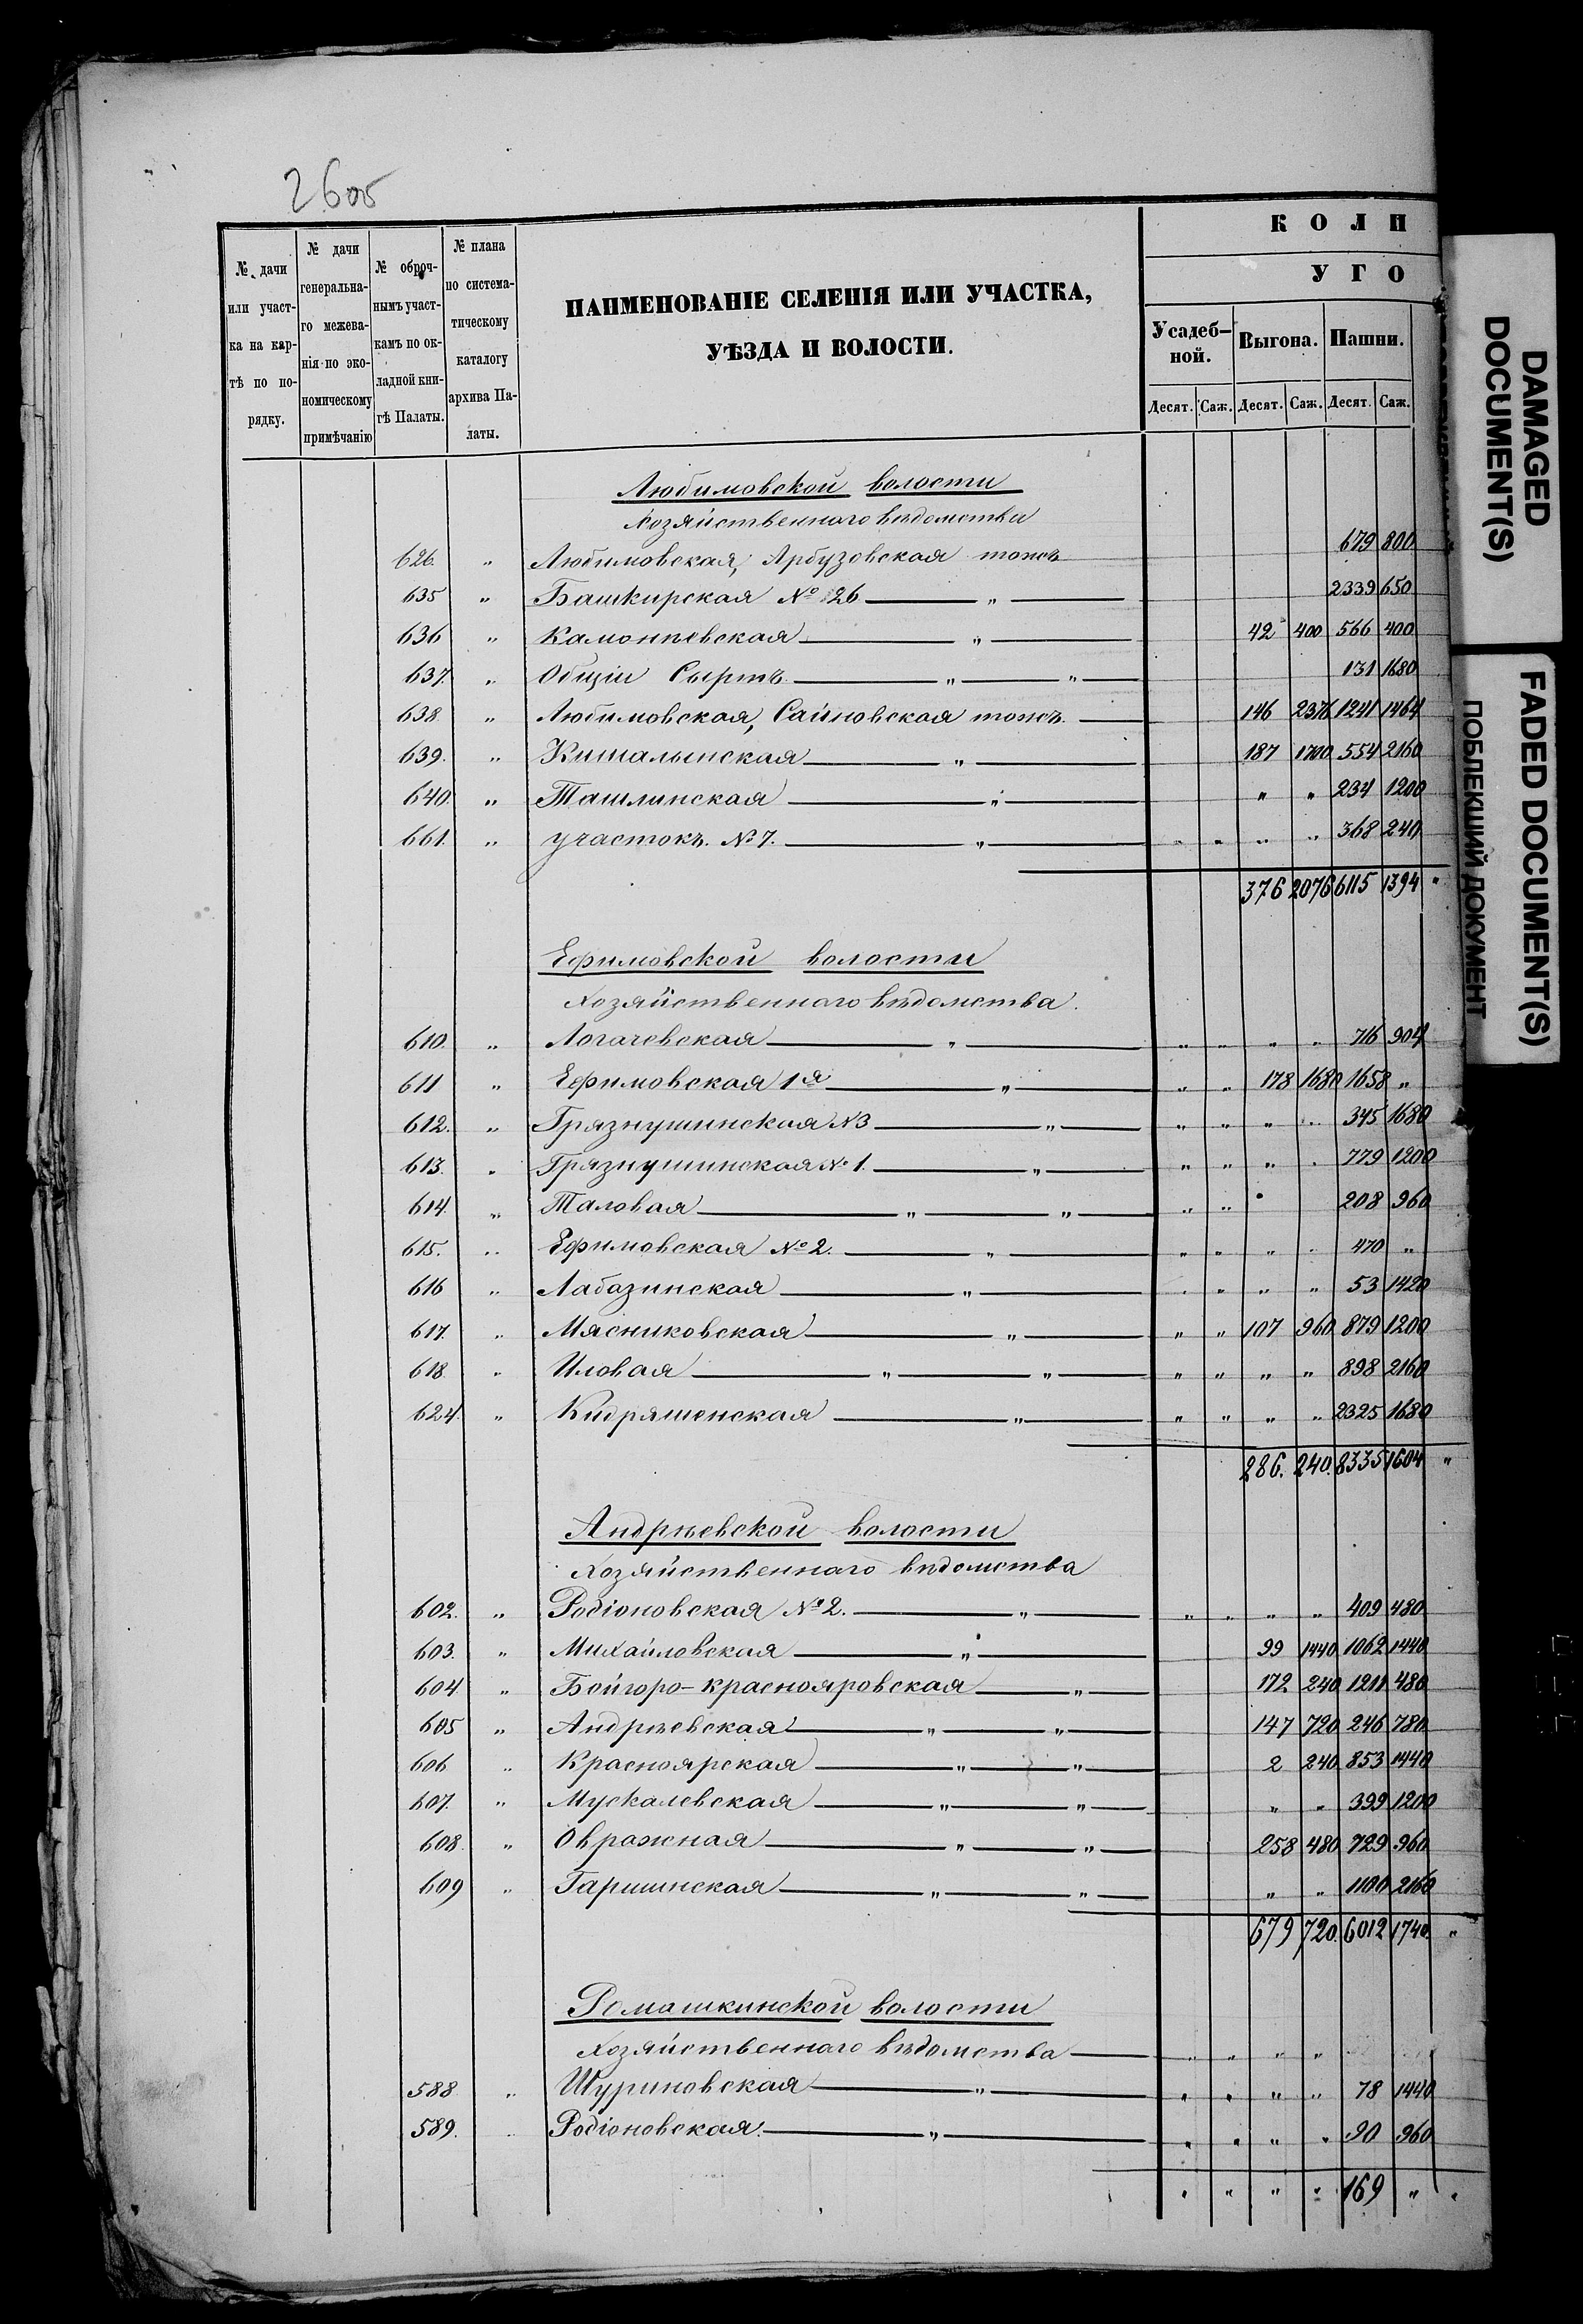 2605
№ дачи или участка на картѣ по порядку.
№ дачи генеральнаго межеванія по экономическому примѣчанію
№ оброчнымъ участкамъ по окладной книгѣ Палаты.
№ плана по систематическому каталогу архива Палаты.
НАИМЕНОВАНІЕ СЕЛЕНІЯ ИЛИ УЧАСТКА,
УѢЗДА И ВОЛОСТИ.
КОЛИ
УГО
Усадебной. Выгона. Пашни.
Десят. Саж. Десят. Саж. Десят. Саж.
Любимовской волости
Хозяйственнаго вѣдомства
626. „ Любимовская, Арбузовская тожъ 679 800
635 „ Башкирская № 26 „ 2339 650
636 „ Камонѣевская „ 42 400 566 400
637. „ Общій Сыртъ „ „ 131 1680
638. „ Любимовская, Сайновская тожъ. 146 2376 1241 1464
639. „ Кималынская „ 187 1700 554 2160
640. „ Ташлинская „ „ „ 234 1200
661. „ участокъ. № 7. „ „ „ „ „ 368 240
376 2076 6115 1394 „
Ефимовской волости
Хозяйственнаго вѣдомства.
610. „ Логачевская „ „ „ „ „ 716 904
611 „ Ефимовская 1я „ „ „ 178 1680 1658 „
612. „ Грязнушинская № 3 „ „ „ „ „ 345 1680
613. „ Грязнушинская № 1. „ „ „ „ „ 779 1200
614. „ Таловая „ „ „ „ 208 960
615. „ Ефимовская № 2. „ „ „ „ „ 470 „
616 „ Лабазинская „ „ „ „ „ 53 1420
617. „ Мясниковская „ „ „ 107 960 879 1200
618. „ Иловая „ „ „ „ „ „ 898 2160
624. „ Кидряшенская „ „ „ „ „ 2325 1680
286. 240. 8335 1604 „
Андрѣевской волости
Хозяйственнаго вѣдомства
602. „ Родіоновская № 2. „ „ „ „ „ 409 480
603. „ Михайловская „ 99 1440 1062 1440
604 „ Бойгоро-Краснояровская „ 172 240 1211 480
605 „ Андрѣевская „ „ 147 720 246 780
606 „ Красноярская „ „ 2 240 853 1440
607. „ Мускалевская „ „ „ „ 399 1200
608. „ Овражная „ „ 258 480 729 960
609 „ Гаршинская „ „ „ „ 1100 2160
679 720. 6012 1740. „
Ромашкинской волости
Хозяйственнаго вѣдомства „ „ „ „
588 „ Шуриновская „ „ „ „ „ 78 1440
589. „ Родіоновская. „ „ „ „ „ 90 960
„ „ „ „ 169 „ „
DAMAGED
DOCUMENT(S)
FADED DOCUMENT(S)
ПОБЛЕКШИЙ ДОКУМЕНТ